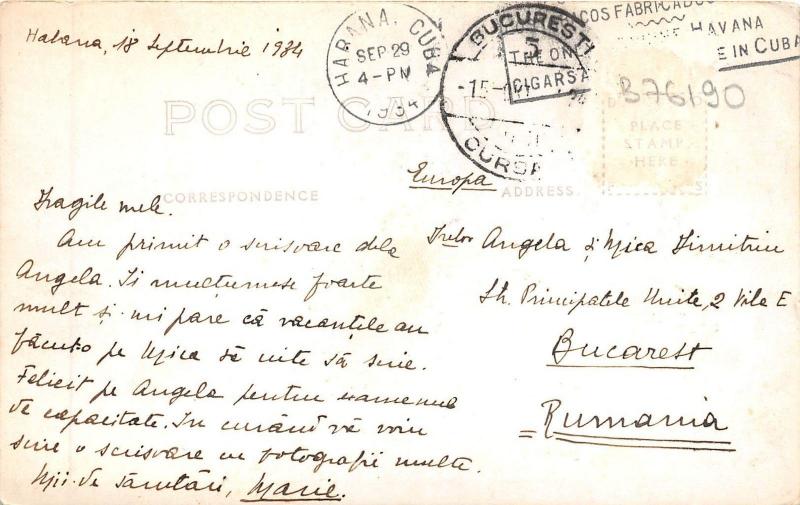 Habana, 18 Septembrie 1934
HABANA, CUBA
SEP 29
4-PM
1934
BUCUREȘTI
5
CURSA
ICOS FABRICADOS
HAVANA
THE ON
E IN CUBA
CIGARS
B76190
POST CARD
PLACE
STAMP
HERE
CORRESPONDENCE
ADDRESS
Europa
Dragile mele.
Am primit o scrisoare dela
Angela. Îi mulțumesc foarte
mult și mi pare că vacanțele au
făcut-o pe Mica să uite să scrie.
Felicit pe Angela pentru examenul
de capacitate. În curând vă voiu
scrie o scrisoare cu fotografii multe.
Mii de sărutări, Marie.
Angela și Mica Dimitriu
Str. Principatele Unite, 2 Vila E
Bucarest
Rumania